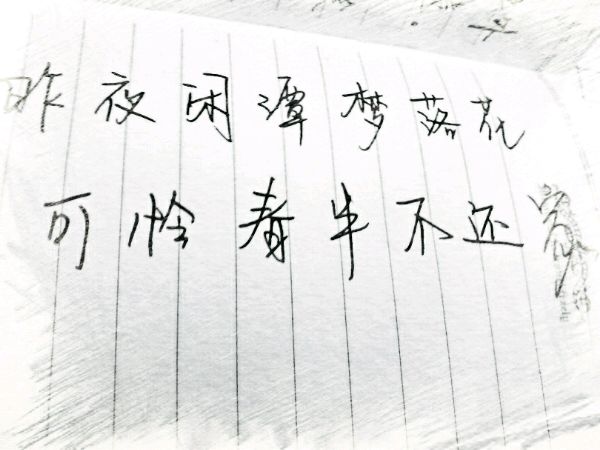 昨夜闲潭梦落花
可怜春半不还家